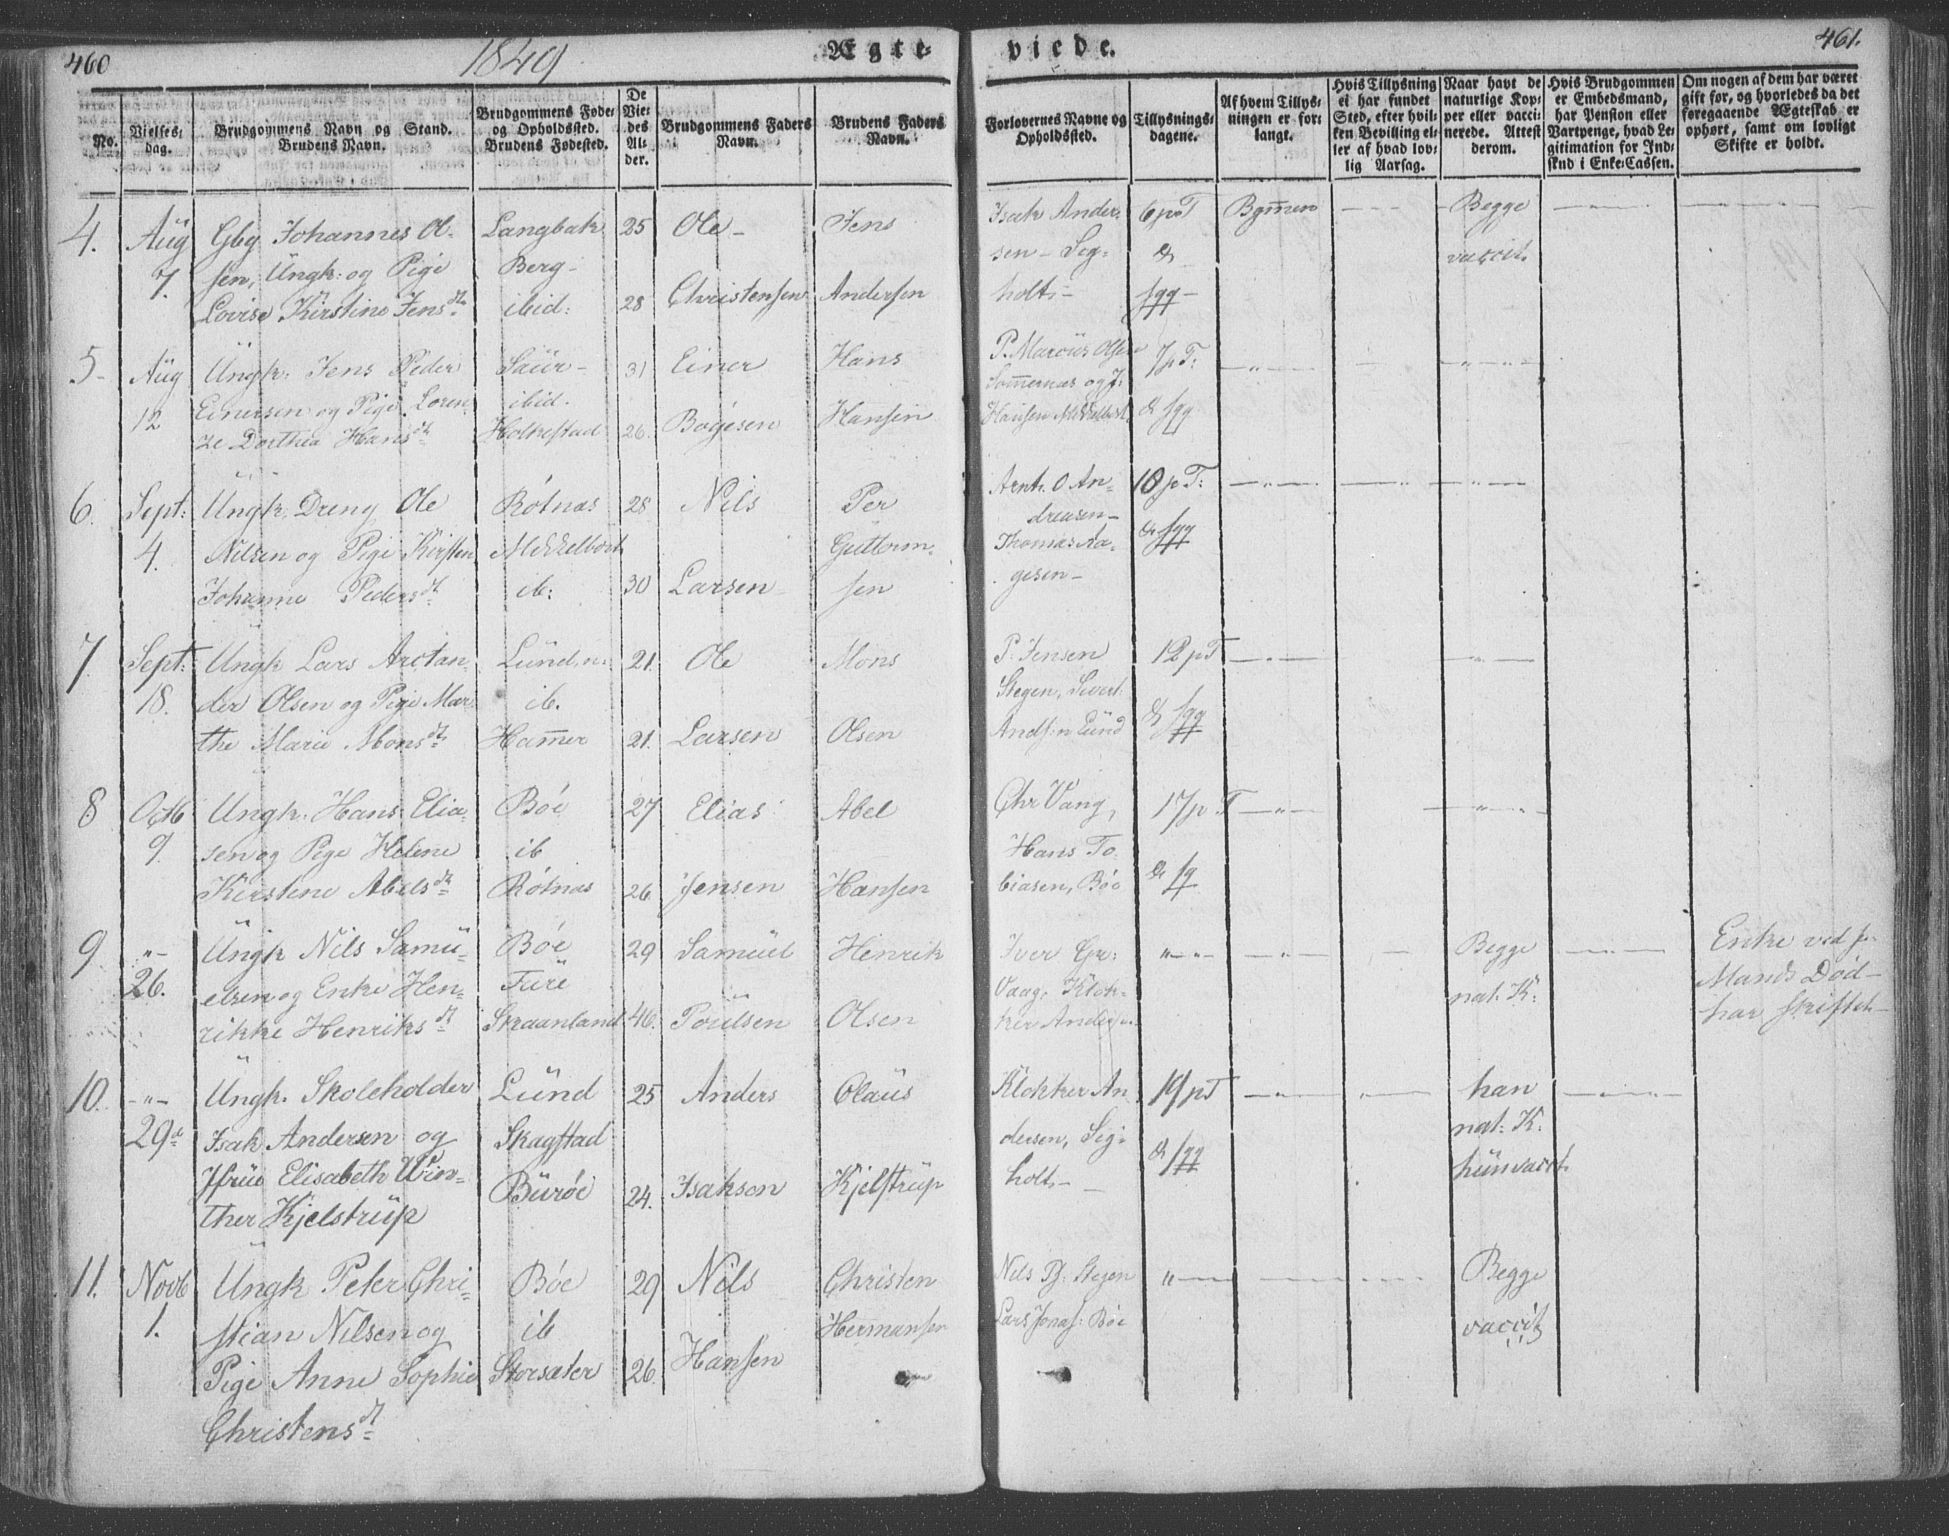 460
1849
Ægte-
viede.
461.
No.
Vielses-
dag.
Brudgommens Navn og Stand.
Brudens Navn.
Brudgommens Føde-
og Opholdssted.
Brudens Fødested.
De
Vie-
des
Al-
der.
Brudgommens Faders
Navn.
Brudens Faders
Navn.
Forlovernes Navne og
Opholdssted.
Tillysnings-
dagene.
Af hvem Tillys-
ningen er for-
langt.
Hvis Tillysning
ei har fundet
Sted, efter hvil-
ken Bevilling el-
ler af hvad lov-
lig Aarsag.
Naar havt de
naturlige Kop-
per eller vacci-
nerede. Attest
derom.
Hvis Brudgommen
er Embedsmand,
har Pension eller
Vartpenge, hvad Le-
gitimation for Ind-
skud i Enke-Cassen.
Om nogen af dem har været
gift før, og hvorledes da det
foregaaende Ægteskab er
ophørt, samt om lovligt
Skifte er holdt.
4.
Aug
7.
Gbg. Johannes Ol-
sen, Ungk: og Pige
Lovise Kirstine Jensdt.
Langbak
Berg-
ibid:
25
28
Ole-
Christensen
Jens
Andersen
Isak Ander-
sen - Sig-
holt-
6 p. T
&
fgg-
Bgmen
Begge
vaccit.
5.
Aug
12
Ungk. Jens Peder
Einersen og Pige Loren-
ze Dorthea Hansdt.
Saur-
ibid.
Holkestad
31
26.
Einer
Bøgesen
Hans
Hansen
P. Marcus Olsen
Sommernæs og J.
Hansen Mikkelbost.
7 p T:
& fgg
6.
Sept:
4.
Ungk. Dreng Ole
Nilsen og Pige Kirsten
Johanne Pedersdt.
Rótnæs
Mikkelbost
ib:
28
30
Nils
Larsen
Per
Guttorm-
sen
Arnt. O An-
dreasen-
Thomas Aa-
gesen-
10 p T:
& fgg
7.
Sept:
18.
Ungk Lars Arctan-
der Olsen og Pige Mar-
the Marie Monsdt.
Lund, n:
ib.
Hamer
21.
21.
Ole
Larsen
Mons
Olsen
P. Jensen
Stegen, Sivert
Ands: n Lund
12 p T
& fgg
8
Octb
9.
Ungk. Hans Elia-
sen og Pige Helene
Kirstine Abelsdt.
Bóe
ib
Rótnæs
27
26.
Elias
Jensen
Abel
Hansen
Chr Vang,
Hans To-
biasen, Bóe
17 p T
& fg
9.
-"-
26.
Ungk Nils Samu-
elsen og Enke Hen-
rikke Henriksdt.
Bóe
Furë
Skaanland
29
46.
Samuel
Poulsen
Henrik
Olsen
Iver Gr:
Vaag. Klok-
ker Andersen
Begge
nat. K:
Enke ved f-
Mands Død-
har skiftet-
10.
-"-
29de
Ungk. Skoleholder
Isak Andersen og
Jfrue Elisabeth Win-
ther Kjelstrup
Lund
Skagstad
Buróe
25
24.
Anders
Isaksen
Olaus
Kjelstrup
Klokker An-
dersen, Sig-
holt.-
19 p T
& fgg
han
nat: K:
hun vacct.
11.
Novb
1.
Ungk Peter Chri-
stian Nilsen og
Pige Anne Sophie
Christensdt.
Bóe
ib
Storsæter
29
26.
Nils
Hansen
Christen
Hermansen
Nils Pf: Stegen
Lars Jonas: Bóe
Begge
vaccit